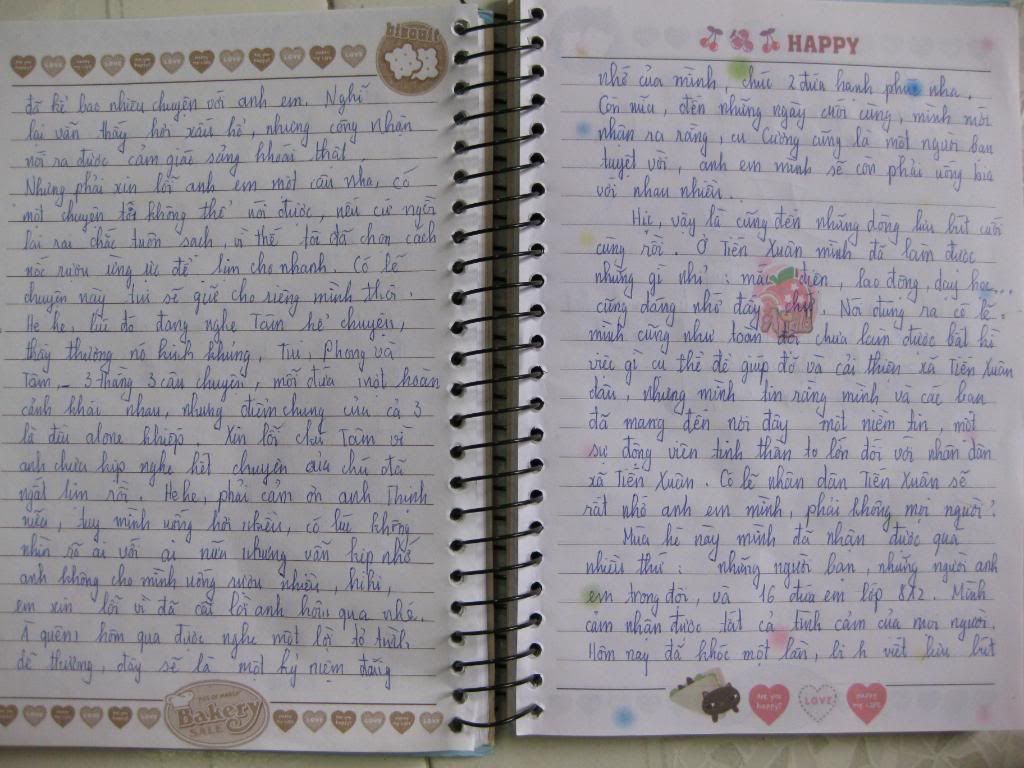 biscuit
đã kể bao nhiêu chuyện với anh em. Nghĩ
lại vẫn thấy hơi xấu hổ, nhưng công nhận
nói ra được cảm giác sảng khoái thật
Nhưng phải xin lỗi anh em một câu nha, có
một chuyện tôi không thể nói được, nếu cứ ngồi
lai rai chắc tuôn sạch, vì thế tôi đã chọn cách
nốc rượu ừng ực để lim cho nhanh. Có lẽ
chuyện này tui sẽ giữ cho riêng mình thôi.
He he, lúc đó đang nghe Tâm kể chuyện,
thấy thương nó kinh khủng, Tui, Phong và
Tâm - 3 thằng 3 câu chuyện, mỗi đứa một hoàn
cảnh khác nhau, nhưng điểm chung của cả 3
là đều alone khiếp. Xin lỗi chú Tâm vì
anh chưa kịp nghe hết chuyện của chú đã
ngất lim rồi. Hehe, phải cảm ơn anh Thịnh
nữa, tuy mình uống hơi nhiều, có lúc không
nhìn rõ ai với ai nữa nhưng vẫn kịp nhớ
anh không cho mình uống rượu nhiều, hihi,
em xin lỗi vì đã cãi lời anh hôm qua nhé..
À quên, hôm qua được nghe một lời tỏ tình
dễ thương, đây sẽ là một kỷ niệm đáng
Bakery
SALE
HAPPY
nhớ của mình, chúc 2 đứa hạnh phúc nha.
Còn nữa, đến những ngày cuối cùng, mình mới
nhận ra rằng, cu Cường cũng là một người bạn
tuyệt vời, anh em mình sẽ còn phải uống bia
với nhau nhiều..
Hừ, vậy là cũng đến những dòng lưu bút cuối
cùng rồi. Ở Tiến Xuân mình đã làm được
những gì nhỉ: mắc điện, lao động, dạy học...
cũng đáng nhớ đấy chứ. Nói đúng ra có lẽ
mình cũng như toàn đội chưa làm được bất kì
việc gì cụ thể để giúp đỡ và cải thiện xã Tiến Xuân
đâu, nhưng mình tin rằng mình và các bạn
đã mang đến nơi đây một niềm tin, một
sự động viên tinh thần to lớn đối với nhân dân
xã Tiến Xuân. Có lẽ nhân dân Tiến Xuân sẽ
rất nhớ anh em mình, phải không mọi người?
Mùa hè này mình đã nhận được quá
nhiều thứ: những người bạn, những người anh
em trong đội, và 16 đứa em lớp 8A2. Mình
cảm nhận được tất cả tình cảm của mọi người.
Hôm nay đã khóc một lần, viết lưu bút
Are you happy?
LOVE
HAPPY my LIFE